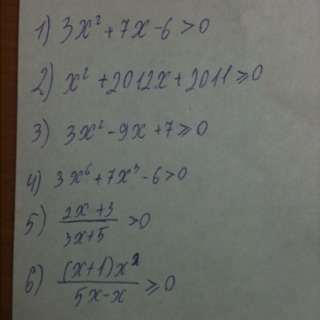 1) 3x² + 7x - 6 > 0
2) x² + 2012x + 2011 ⩾ 0
3) 3x² - 9x + 7 ⩾ 0
4) 3x⁶ + 7x³ - 6 > 0
5) (2x + 3)/(3x + 5) > 0
6) ((x + 1)x²)/(5x - x) ⩾ 0